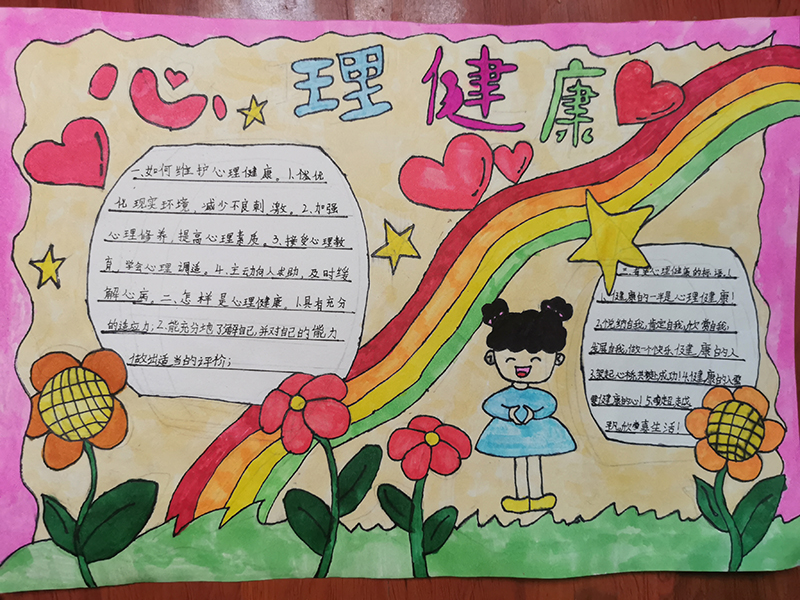 心理健康
一、如何维护心理健康。1.优优
化现实环境,减少不良刺激。2.加强
心理修养,提高心理素质。3.接受心理教
育,学会心理调适。4.主动向人求助,及时缓
解心病。二、怎样是心理健康。1.具有充分
的适应力;2.能充分地了解自己,并对自己的能力
做出适当的评价;
三、有关心理健康的标语。
1.健康的一半是心理健康!
2.悦纳自我,肯定自我,欣赏自我,
发展自我,做一个快乐健康的人
3.架起心桥,共赴成功!4.健康的人
健康的心!5.
欣喜生活!